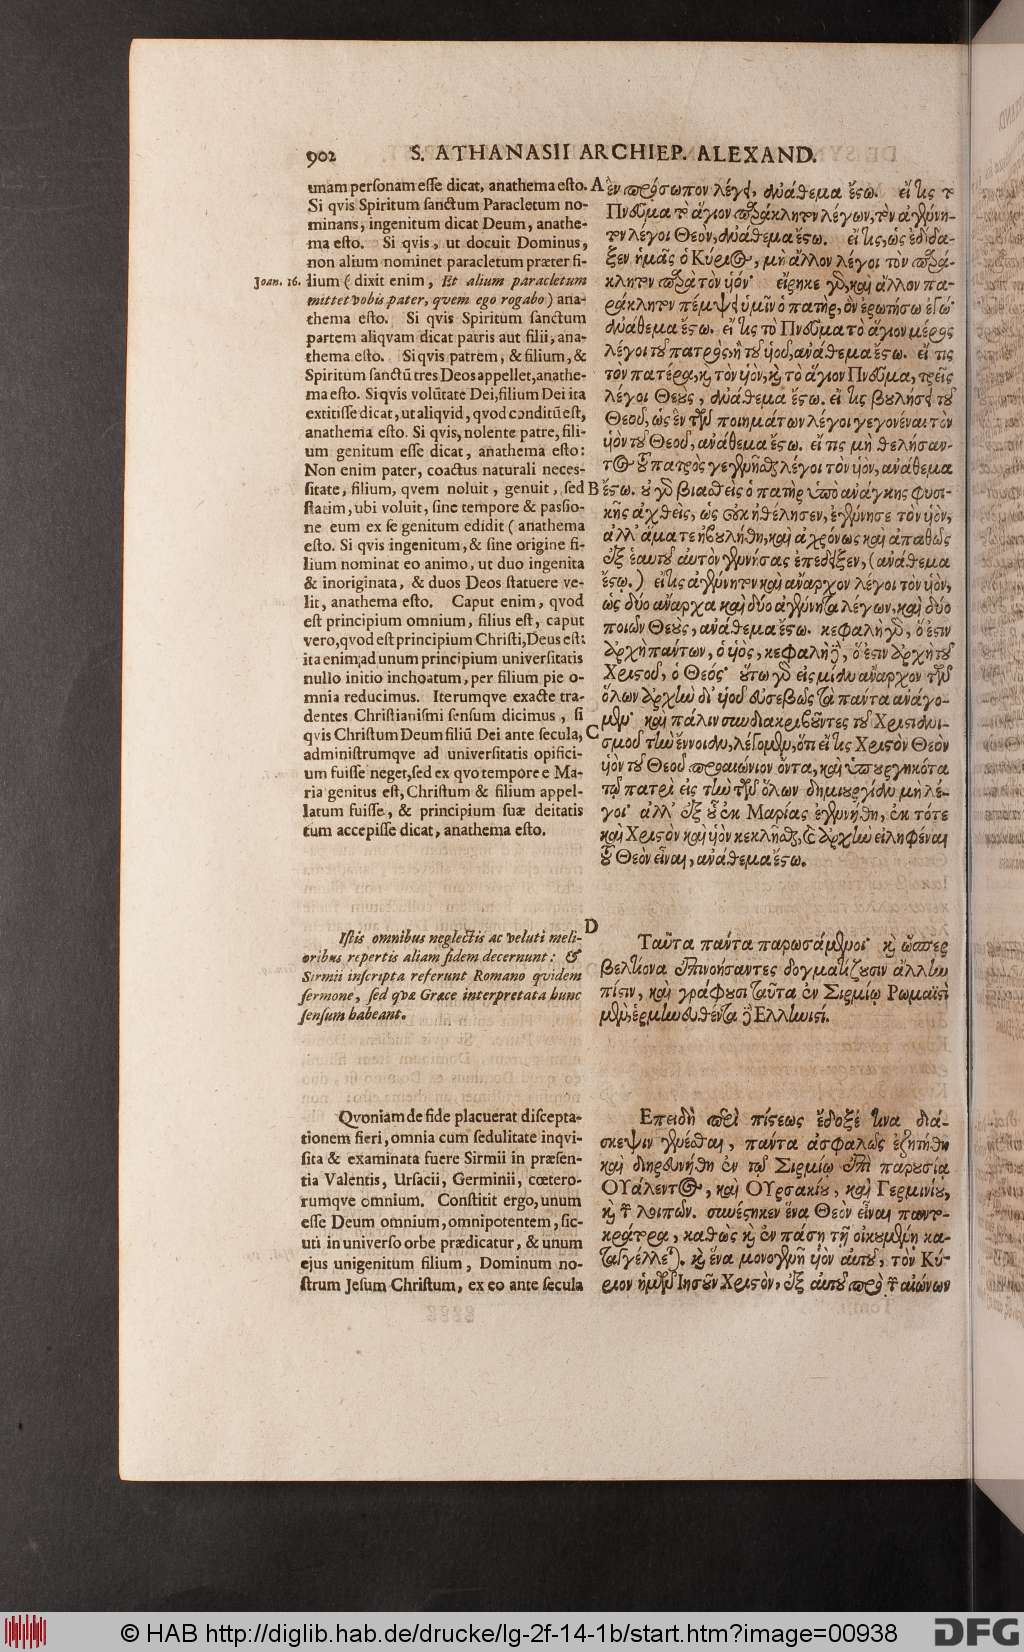 902 S. ATHANASII ARCHIEP. ALEXAND.
unam personam esse dicat, anathema esto.
Si qvis Spiritum sanctum Paracletum no-
minans, ingenitum dicat Deum, anathe-
ma esto. Si qvis, ut docuit Dominus,
non alium nominet paracletum præter fi-
Joan. 16.
lium (dixit enim, Et alium paracletum
mittet vobis pater, qvem ego rogabo) ana-
thema esto. Si qvis Spiritum sanctum
partem aliqvam dicat patris aut filii, ana-
thema esto. Si qvis patrem, & filium, &
Spiritum sanctū tres Deos appellet, anathe-
ma esto. Si qvis volūtate Dei, filium Dei ita
extitisse dicat, ut aliqvid, qvod conditū est,
anathema esto. Si qvis, nolente patre, fili-
um genitum esse dicat, anathema esto:
Non enim pater, coactus naturali neces-
sitate, filium, qvem noluit, genuit, sed
statim, ubi voluit, sine tempore & passio-
ne eum ex se genitum edidit (anathema
esto. Si qvis ingenitum, & sine origine fi-
lium nominat eo animo, ut duo ingenita
& inoriginata, & duos Deos statuere ve-
lit, anathema esto. Caput enim, qvod
est principium omnium, filius est, caput
vero, qvod est principium Christi, Deus est:
ita enim, ad unum principium universitatis
nullo initio inchoatum, per filium pie o-
mnia reducimus. Iterumqve exacte tra-
dentes Christianismi sensum dicimus, si
qvis Christum Deum filiū Dei ante secula,
administrumqve ad universitatis opifici-
um fuisse neget, sed ex qvo tempore e Ma-
ria genitus est, Christum & filium appel-
latum fuisse, & principium suæ deitatis
tum accepisse dicat, anathema esto.
Istis omnibus neglectis ac veluti meli-
oribus repertis aliam fidem decernunt: &
Sirmii inscripta referunt Romano qvidem
sermone, sed qvæ Græce interpretata hunc
sensum habeant.
Qvoniam de fide placuerat discepta-
tionem fieri, omnia cum sedulitate inqvi-
sita & examinata fuere Sirmii in præsen-
tia Valentis, Ursacii, Germinii, cœtero-
rumqve omnium. Constitit ergo, unum
esse Deum omnium, omnipotentem, sic-
uti in universo orbe prædicatur, & unum
ejus unigenitum filium, Dominum no-
strum Jesum Christum, ex eo ante secula
A
B
C
D
ἓν πρόσωπον λέγει, ἀνάθεμα ἔστω. εἴ τις τὸ
Πνεῦμα τὸ ἅγιον παράκλητον λέγων, τὸν ἀγέννη-
τον λέγοι Θεὸν, ἀνάθεμα ἔστω. εἴ τις, ὡς ἐδίδα-
ξεν ἡμᾶς ὁ Κύριος, μὴ ἄλλον λέγοι τὸν παρά-
κλητον παρὰ τὸν υἱόν· εἴρηκε γὰρ, καὶ ἄλλον πα-
ράκλητον πέμψει ὑμῖν ὁ πατὴρ, ὃν ἐρωτήσω ἐγώ·
ἀνάθεμα ἔστω. εἴ τις τὸ Πνεῦμα τὸ ἅγιον μέρος
λέγοι τοῦ πατρὸς, ἢ τοῦ υἱοῦ, ἀνάθεμα ἔστω. εἴ τις
τὸν πατέρα, καὶ τὸν υἱὸν, καὶ τὸ ἅγιον Πνεῦμα, τρεῖς
λέγοι Θεοὺς, ἀνάθεμα ἔστω. εἴ τις βουλήσει τοῦ
Θεοῦ, ὡς ἓν τῶν ποιημάτων λέγοι γεγονέναι τὸν
υἱὸν τοῦ Θεοῦ, ἀνάθεμα ἔστω. εἴ τις μὴ θελήσαν-
τος τοῦ πατρὸς γεγεννῆσθαι λέγοι τὸν υἱὸν, ἀνάθεμα
ἔστω. οὐ γὰρ βιασθεὶς ὁ πατὴρ ὑπὸ ἀνάγκης φυσι-
κῆς ἀχθεὶς, ὡς οὐκ ἠθέλησεν, ἐγέννησε τὸν υἱὸν,
ἀλλ' ἅμα τε ἠβουλήθη, καὶ ἀχρόνως καὶ ἀπαθῶς
ἐξ ἑαυτοῦ αὐτὸν γεννήσας ἐπέδειξεν, (ἀνάθεμα
ἔστω.) εἴ τις ἀγέννητον καὶ ἄναρχον λέγοι τὸν υἱὸν,
ὡς δύο ἄναρχα καὶ δύο ἀγέννητα λέγων, καὶ δύο
ποιῶν Θεοὺς, ἀνάθεμα ἔστω. κεφαλὴ γὰρ, ὅ ἐστιν
ἀρχὴ πάντων, ὁ υἱὸς, κεφαλὴ δὲ, ὅ ἐστιν ἀρχὴ τοῦ
Χριστοῦ, ὁ Θεός· οὕτω γὰρ εἰς μίαν ἄναρχον τῶν
ὅλων ἀρχὴν δι' υἱοῦ εὐσεβῶς τὰ πάντα ἀνάγο-
μεν· καὶ πάλιν συνδιακριβοῦντες τοῦ Χριστιανι-
σμοῦ τὴν ἔννοιαν, λέγομεν, ὅτι εἴ τις Χριστὸν Θεὸν
υἱὸν τοῦ Θεοῦ προαιώνιον ὄντα, καὶ ὑπουργηκότα
τῷ πατρὶ εἰς τὴν τῶν ὅλων δημιουργίαν μὴ λέ-
γοι· ἀλλ' ἐξ οὗ ἐκ Μαρίας ἐγεννήθη, ἐκ τότε
καὶ Χριστὸν καὶ υἱὸν κεκλῆσθαι, καὶ ἀρχὴν εἰληφέναι
τοῦ Θεὸν εἶναι, ἀνάθεμα ἔστω.
Ταῦτα πάντα παρωσάμενοι· καὶ ὥσπερ
βελτίονα ἐπινοήσαντες δογματίζουσιν ἄλλην
πίστιν, καὶ γράφουσι ταῦτα ἐν Σιρμίῳ Ρωμαϊστὶ
μὲν, ἑρμηνευθέντα δὲ Ἑλληνιστί.
Επειδὴ περὶ πίστεως ἔδοξέ τινα διά-
σκεψιν γενέσθαι, πάντα ἀσφαλῶς ἐζητήθη
καὶ διηρευνήθη ἐν τῷ Σιρμίῳ ἐπὶ παρουσίᾳ
ΟΥάλεντος, καὶ ΟΥρσακίου, καὶ Γερμινίου,
καὶ τῶν λοιπῶν. συνέστηκεν ἕνα Θεὸν εἶναι παντο-
κράτορα, καθὼς καὶ ἐν πάσῃ τῇ οἰκουμένῃ κα-
ταγγέλλεται. καὶ ἕνα μονογενῆ υἱὸν αὐτοῦ, τὸν Κύ-
ριον ἡμῶν Ιησοῦν Χριστὸν, ἐξ αὐτοῦ πρὸ τῶν αἰώνων
© HAB http://diglib.hab.de/drucke/lg-2f-14-1b/start.htm?image=00938
DFG